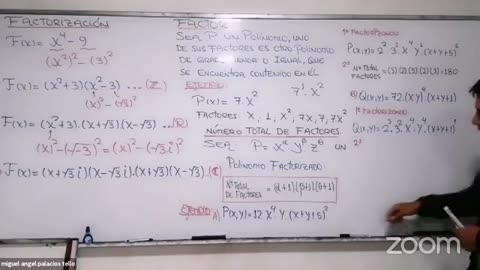 FACTORIZACIÓN
F(x) = x⁴ - 9
(x²)² - (3)²
F(x) = (x²+3)(x²-3) ... (Z)
(x)² - (√3)²
F(x) = (x²+3).(x+√3)(x-√3) ... (R)
(x)² - (√-3)² = (x)² - (√3 i)²
F(x) = (x+√3 i)(x-√3 i).(x+√3)(x-√3).(C)
FACTOR
SEA P UN POLINOMIO, UNO
DE SUS FACTORES ES OTRO POLINOMIO
DE GRADO MENOR O IGUAL, QUE
SE ENCUENTRA CONTENIDO EN ÉL
EJEMPLO: 7¹. X²
P(x) = 7. X²
FACTORES: X, 1, X², 7X, 7, 7X²
NÚMERO TOTAL DE FACTORES.
SEA P = X^α Y^β Z^θ UN
POLINOMIO FACTORIZADO
Nº TOTAL DE FACTORES = (α+1)(β+1)(θ+1)
EJEMPLO A) P(x,y) = 12 X⁴ Y.(x+y+5)²
1º FACTORIZANDO
P(x,y) = 2². 3¹ X⁴ Y¹ (x+y+5)²
2º Nº TOTAL FACTORES = (3)(2)(5)(2)(3) = 180
B) Q(x,y) = 72.(x y)⁴.(x+y+1)
1º FACTORIZANDO
Q(x,y) = 2³. 3². X⁴. Y⁴. (x+y+1)¹
2º
miguel angel palacios tello
zoom